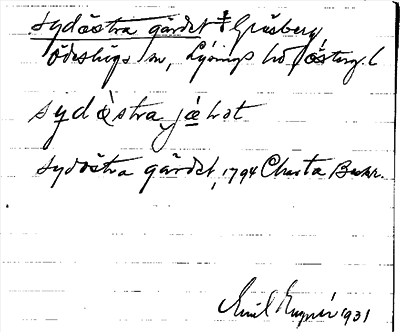 sydöstra gärdet ‡ Gräsberg,
Ödeshögs sn, Lysings hd, Österg. l
sydòstra jäḷat
sydöstra gärdet, 1794 Charta Beskr.
Emil 1931